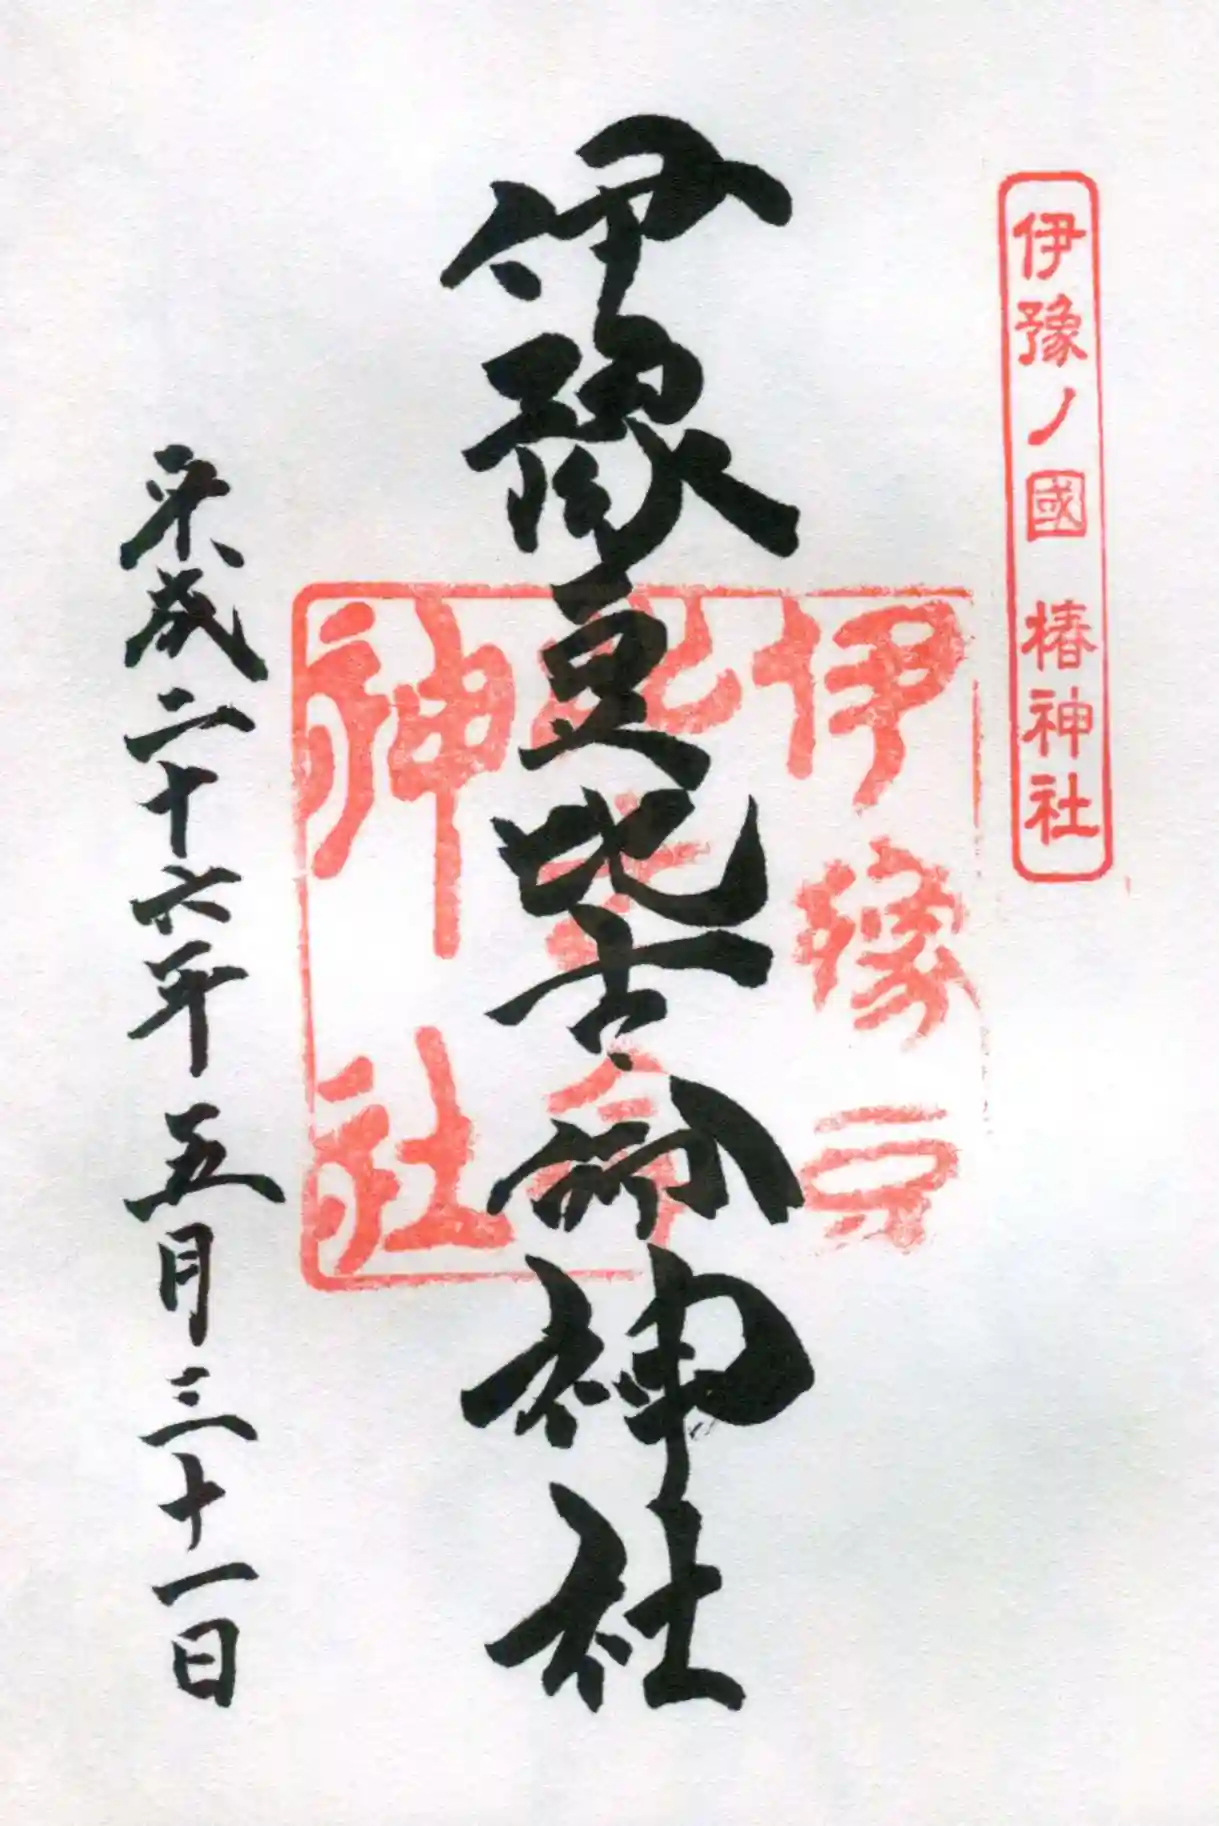 伊豫ノ國 椿神社
伊豫豆比古命神社
伊豫豆
比古命
神社
平成二十六年 五月 三十一日